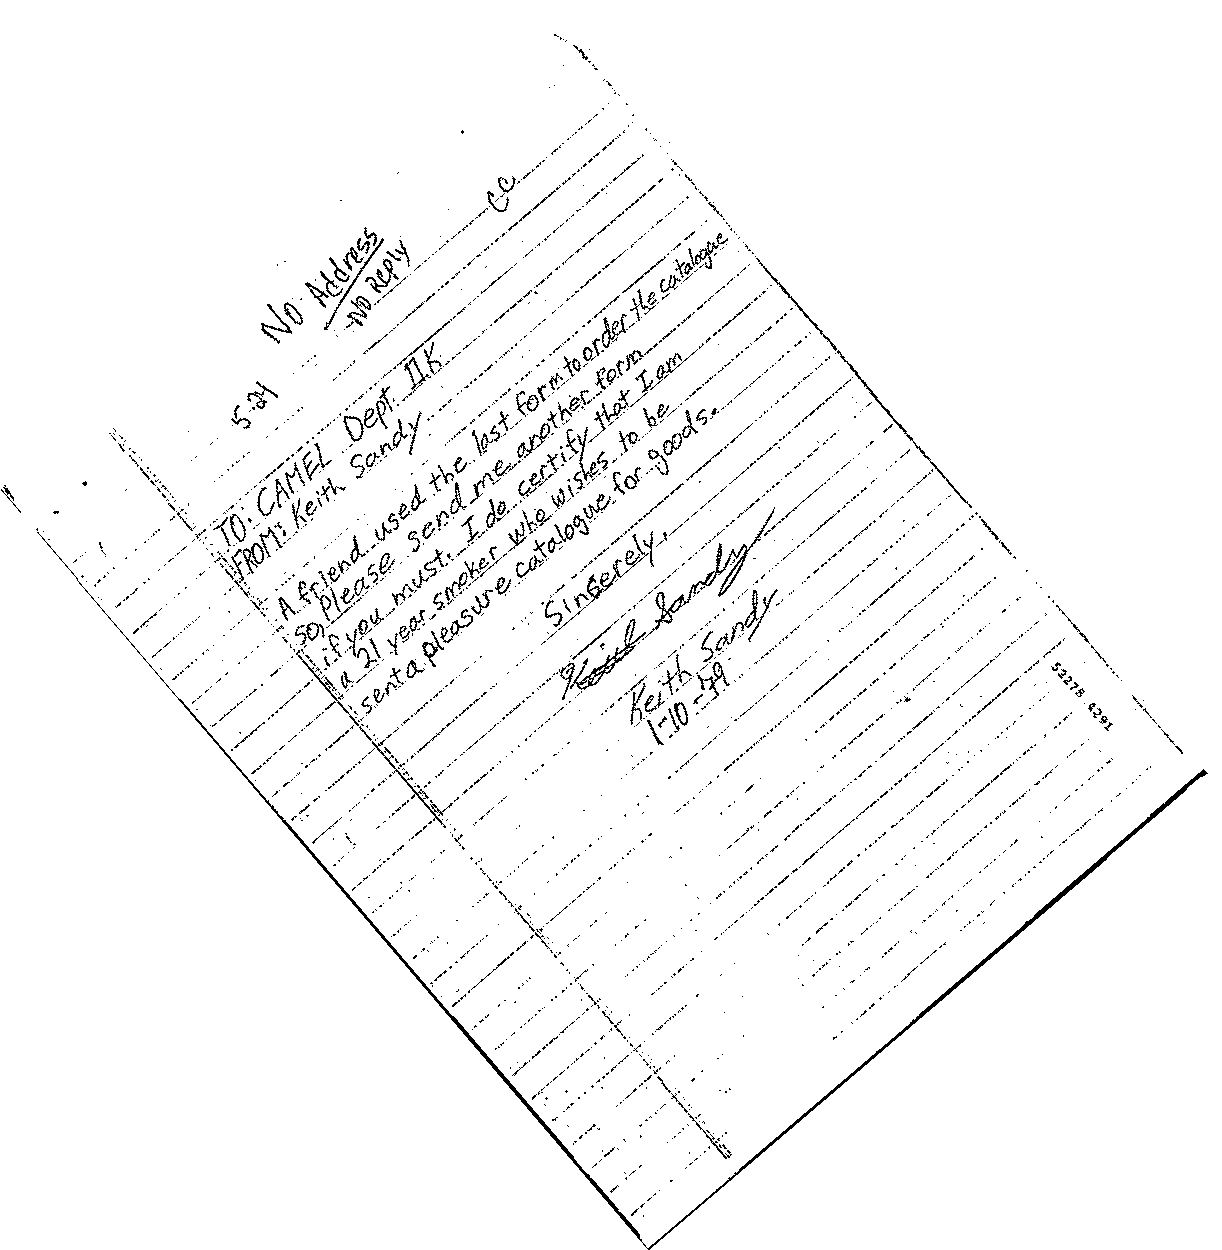 CC
No Address
NO REPLY
5-24
TO: CAMEL Dept. IIK
FROM: Keith Sandy
A friend used the last form to order the catalogue
so, please send me another form
if you must. I do certify that I am
a 21 year smoker who wishes to be
sent a pleasure catalogue for goods.
Sincerely,
Keith Sandy
Keith Sandy
1-10-79
52278 4291